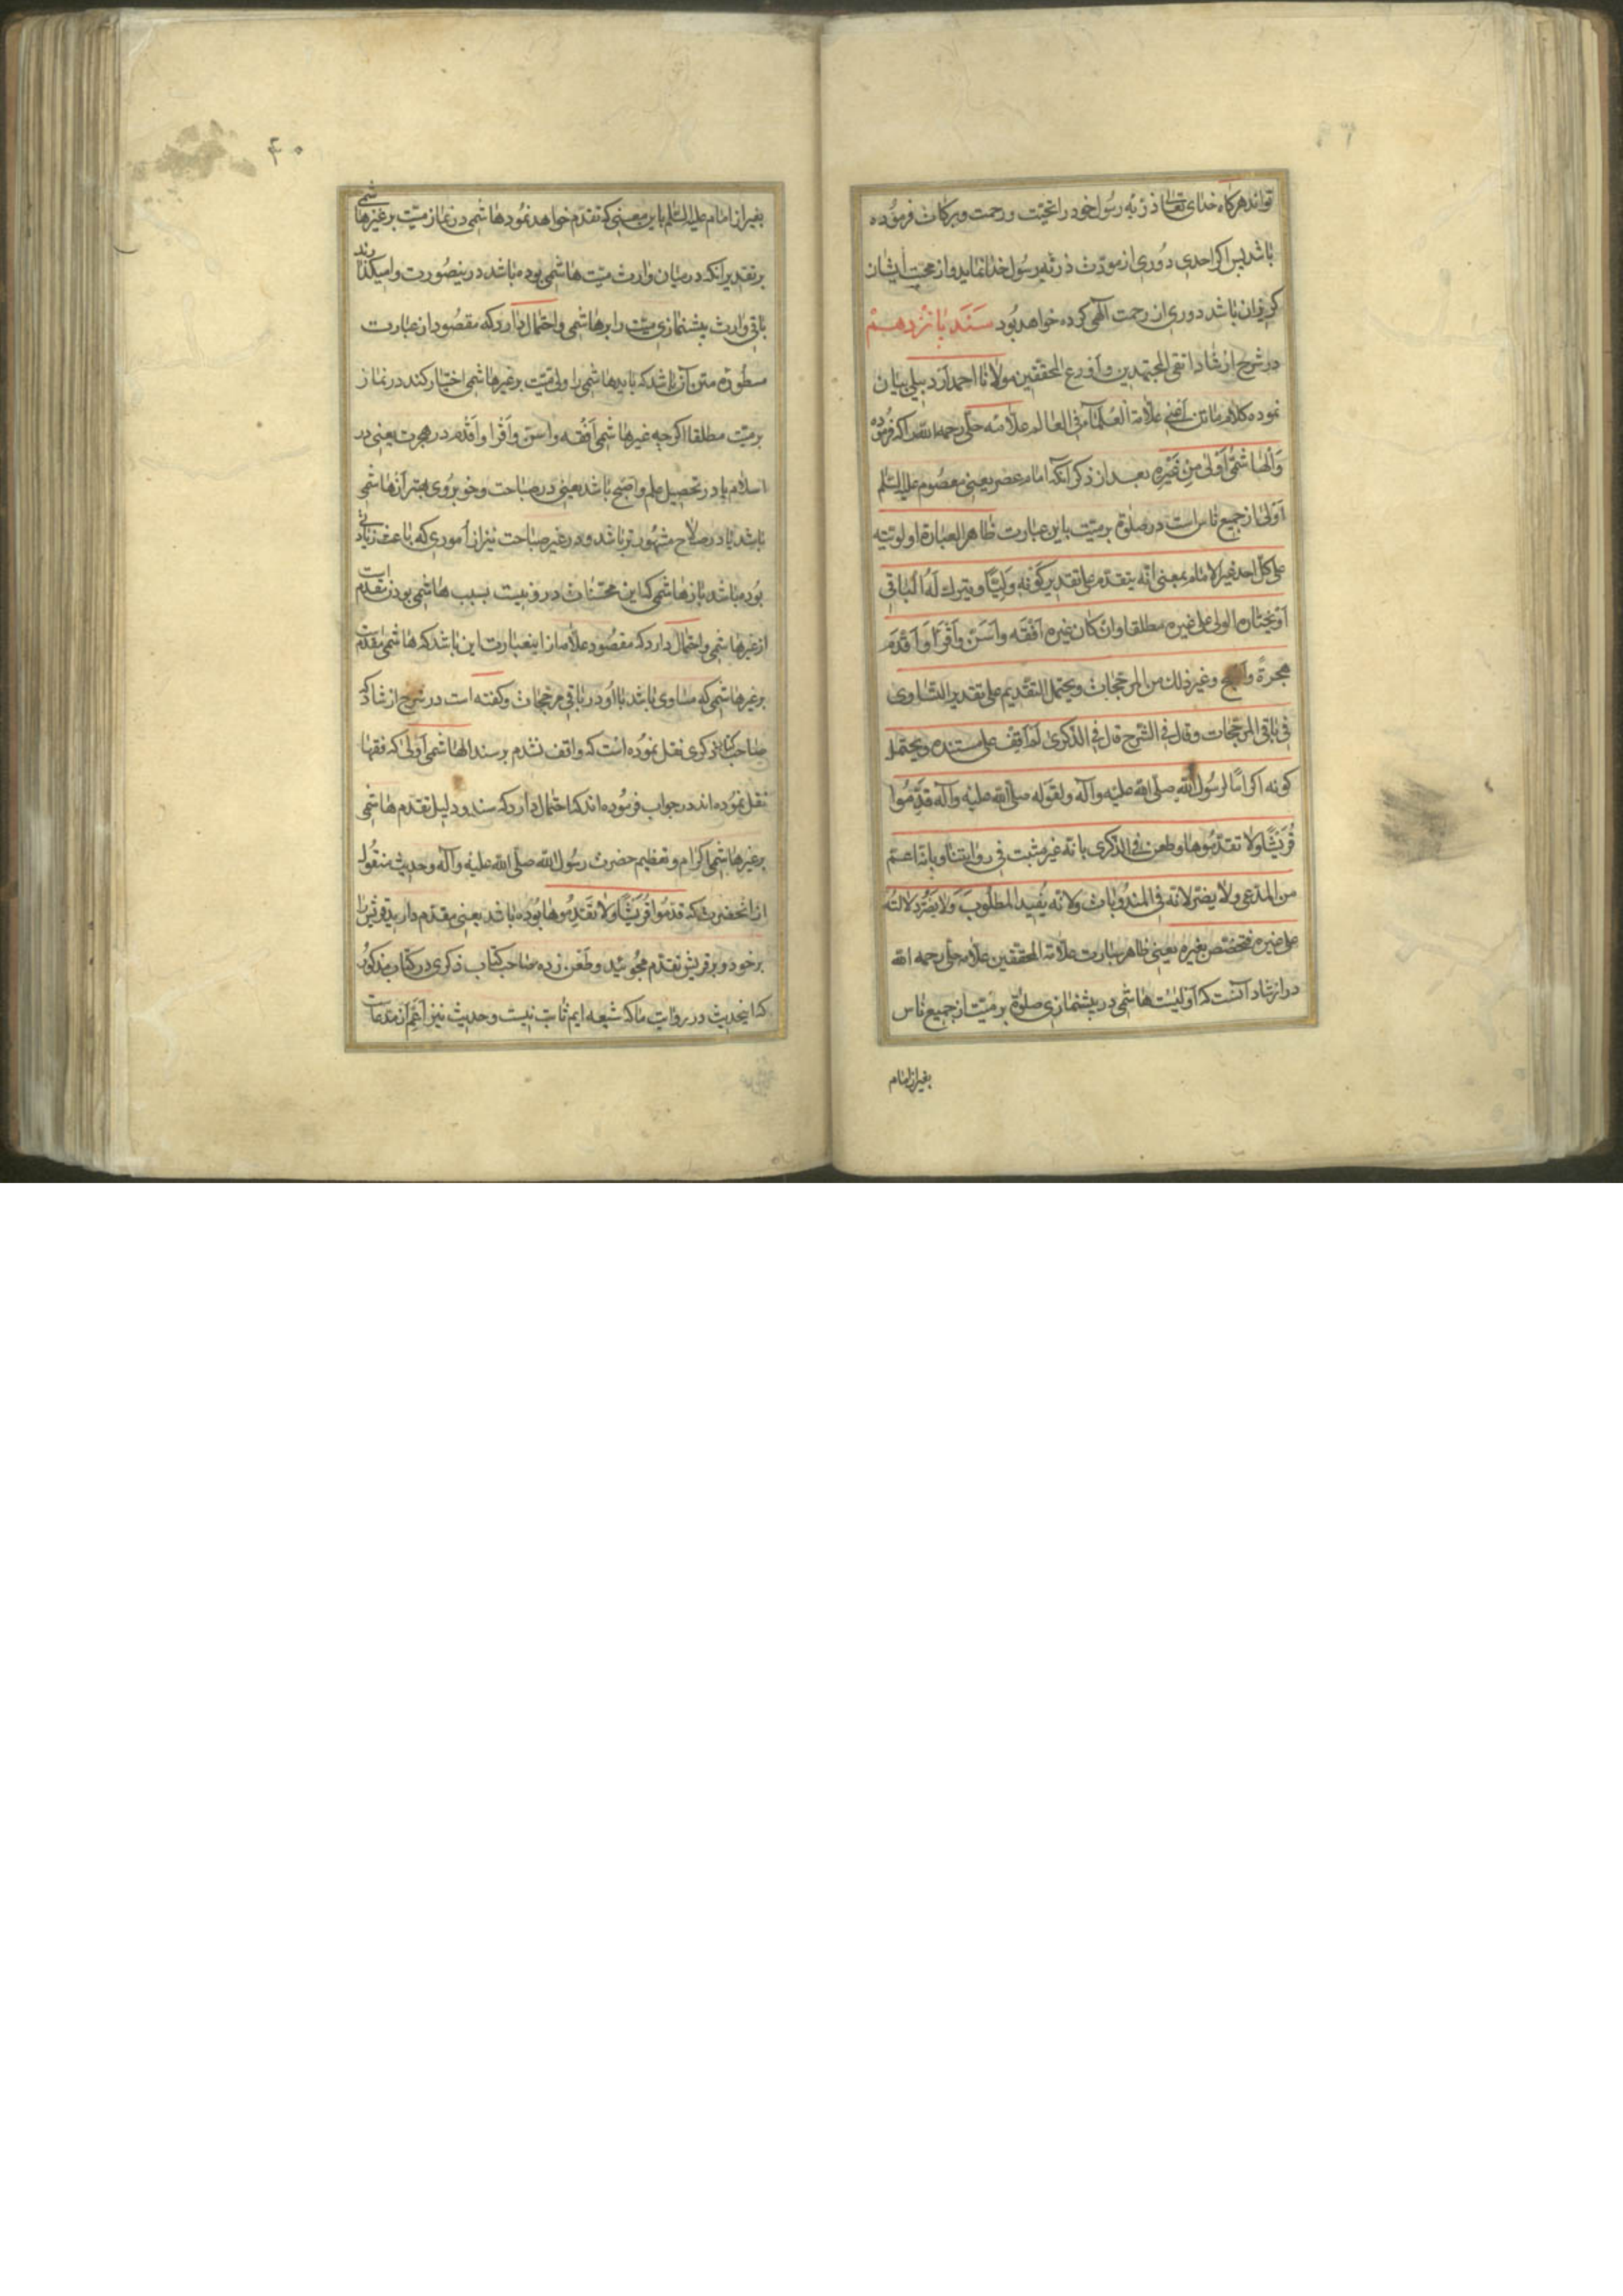 تواند هرکاه خدای تعالی ذرّیه رسُول خود را تحیّت و رحمت و برکات فرمُوده
باشد پس اکر احدی دُوری از مودّت ذرّیه رسُول خدا نماید و از محبّت ایشان
کریزان باشد دوری از رحمت آلهی کرده خواهد بُود سَنَد پانزدهم
در شرح ارشاد اتقی المجتهدین و اَورع المحققین مولانا احمد اردبیلی بیان
نموده کلام ماتن اعنی علّامة العُلمآء فی العالم علّامه حلّی رحمه الله را که فرموُده
وَالهاشمیُّ اَوْلیٰ مِنْ غَیْرِه بعد از ذکر آنکه امام عصر یعنی معصُوم علیه السّلم
اَوْلیٰ از جمیع ناس است در صلوة بر میّت باین عبارت ظاهر العبارة اولویّته
علی کلّ احد غیر الامام بمعنی انّه یتقدّم علی تقدیر کَوْنِه وَلِیًّا و یترك لَهُ الباقی
اَوْ یختاره الولی علی غیره مطلقا و ان کان غیره اَفْقَه و اَسَنّ و اَقْرَأ وَ اَقْدَمَ
هجرةً و غیر ذلك من المرجّحات و یحتمل التقدیم علی تقدیر التساوی
فی باقی المرجّحات و قال فی الشرح قال فی الذکریٰ لَمْ اَقِف علی مستنده و یحتمل
کونه اکرامًا لرسُول اللّٰه صلّی الله علیه و آله و لقوله صلّی الله علیه و آله قدِّمُوا
قُرَیْشًا و لا تقدّمُوها و طعن فی الذّکری بانّه غیر مثبت فی روایتنا و بانّه اعمّ
من المدّعی و لا یضرّ لانّه فی المندُوبات و لانّه یُفید المطلُوبَ وَ لا یَضُرّ دلالتُه
علی غیره فتخصّص بغیره یعنی ظاهر عبارت علّامة المحققین علّامه حلّی رحمه الله
در ارشاد آنست که اَولیّت هاشمی در پیشنمازی صلوة بر میّت از جمیع ناس
بغیر از امام
۴۰
بغیر از امام علیه السّلم باین معنی که تقدّم خواهد نمُود هاشمی در نماز میّت بر غیر هاشمی
بر تقدیر آنکه در میان وارث میّت هاشمی بوده باشد در ینصُورت وامیکذارند
باقی وارث پیشنمازی میّت را بر هاشمی و احتمال دارد که مقصُود از عبارت
مسطُورهٔ متن آن باشد که باید هاشمی را ولی میّت بر غیر هاشمی اختیار کند در نماز
بر میّت مطلقا اکرچه غیر هاشمی اَفْقَه و اَسَنّ و اَقْرا و اَقْدم در هجرت یعنی در
اسلام یا در تحصیل علم و اصبح باشد یعنی در صباحت و خوبرُوی بهتر از هاشمی
باشد یا در صلاح مشهُورتر باشد و در غیر صباحت نیز از اموری که باعث زیادتی
بُوده باشد باز هاشمی که این محسّنات درو نیست بسبب هاشمی بودن مقدّم است
از غیر هاشمی و احتمال دارد که مقصُود علّامه از اینعبارت این باشد که هاشمی مقدّمست
بر غیر هاشمی که مساوی باشد با او در باقی مرجّحات و کفته است در شرح ارشاد که
صاحب کتاب ذکری نقل نموُده است که واقف نشدم بر سند الهاشمی اَولیٰ که فقها
نقل نموُده اند در جواب فرموُده اند که احتمال دارد که سند و دلیل تقدّم هاشمی
بر غیر هاشمی اکرام و تعظیم حضرت رسُول اللّٰه صلّی اللّٰه علیه و آله و حدیث منقُول
از انحضرت که قدّمُوا قُرَیْشًا وَلا تَقَدّمُوها بُوده باشد یعنی مقدّم دارید قریش را
بر خود و بر قریش تقدّم مجُوئید و طَعْن زده صاحب کتاب ذکری در کتاب مذکوُر
که اینحدیث در روایت ما که شیعه ایم ثابت نیست و حدیث نیز اَعَمّ از مدّعاست